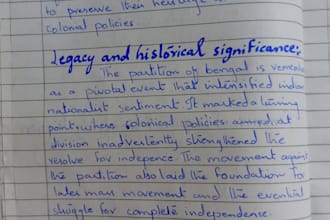 to preserve their heritage
colonial policies
Legacy and historical significance:-
The partition of bengal is
as a pivotal event that intensified indian
nationalist sentiment. It marked a turning
point where colonial policies aimed at
division inadvertently strengthened the
resolve for indepence. The movement against
the partition also laid the foundation for
later mass movement and the eventual
struggle for complete independence.